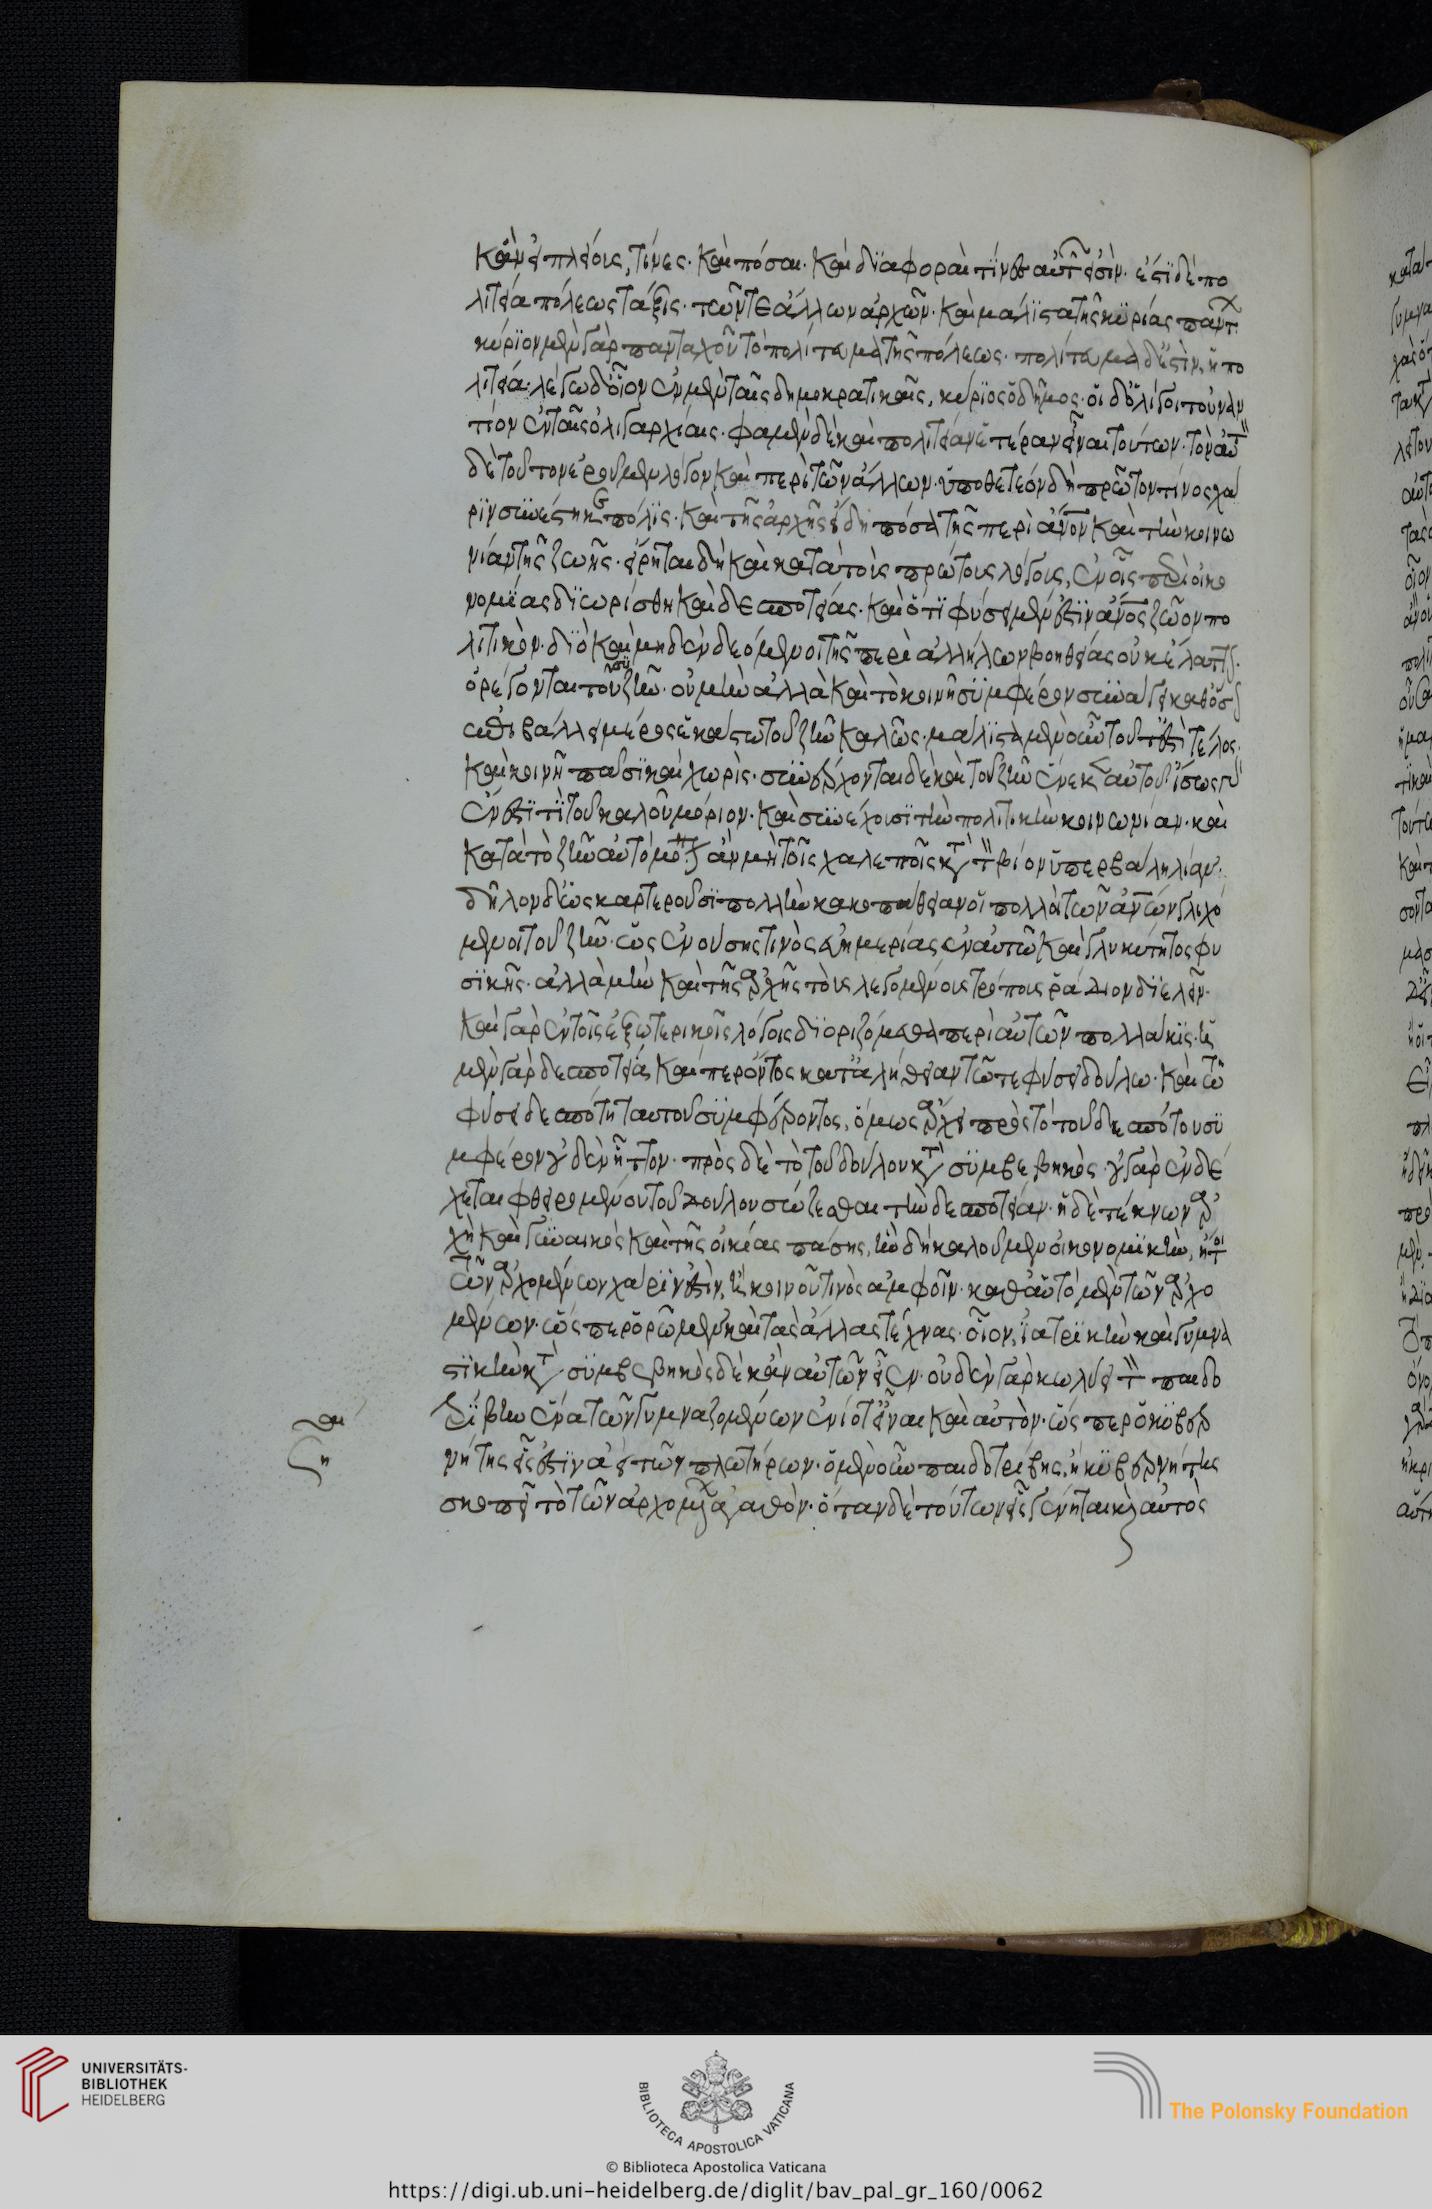 κἂν εἰ πλείους, τίνες. καὶ πόσαι. καὶ διαφοραὶ τίνες αὐτῶν εἰσίν. ἔστι δὲ πο
λιτεία πόλεως τάξις. τῶν τε ἄλλων ἀρχῶν. καὶ μάλιστα τῆς κυρίας πάντ
κύριον μὲν γὰρ πανταχοῦ τὸ πολίτευμα τῆς πόλεως. πολίτευμα δ' ἐστὶν, ἡ πο
λιτεία. λέγω δ' οἷον ἐν μὲν ταῖς δημοκρατικαῖς, κύριος ὁ δῆμος. οἱ δ' ὀλίγοι τοὐναν
τίον ἐν ταῖς ὀλιγαρχίαις. φαμὲν δὲ καὶ πολιτείαν ἑτέραν εἶναι τούτων. τὸν αὐτ
δὲ τοῦτον ἐροῦμεν λόγον καὶ περὶ τῶν ἄλλων. ὑποθετέον δὴ πρῶτον τίνος χά
ριν συνέστηκε πόλις. καὶ τῆς ἀρχῆς εἴδη πόσα τῆς περὶ ἄνον καὶ τὴν κοινω
νίαν τῆς ζωῆς. εἴρηται δὴ καὶ κατὰ τοὺς πρώτους λόγους, ἐν οἷς περὶ οἰκο
νομίας διωρίσθη καὶ δεσποτείας. καὶ ὅτι φύσει μέν ἐστιν ἄνος ζῶον πο
λιτικόν. διὸ καὶ μηδὲν δεόμενοι τῆς περὶ ἀλλήλων βοηθείας οὐκ ἔλαττ.
ὀρέγονται τοῦ συζῆν. οὐ μὴν ἀλλὰ καὶ τὸ κοινῇ συμφέρον συνάγει καθ' ὅσον
ἐπιβάλλει μέρος ἑκάστω τοῦ ζῆν καλῶς. μάλιστα μὲν οὖν τοῦτ' ἐστὶ τέλος.
καὶ κοινῇ πᾶσι καὶ χωρίς. συνέρχονται δὲ καὶ τοῦ ζῆν ἕνεκεν αὐτοῦ. ἴσως γὰρ
ἔνεστί τι τοῦ καλοῦ μόριον. καὶ συνέχουσι τὴν πολιτικὴν κοινωνίαν. καὶ
κατὰ τὸ ζῆν αὐτὸ μόνον ἂν μὴ τοῖς χαλεποῖς κατὰ τὸν βίον ὑπερβάλη λίαν.
δῆλον δ' ὡς καρτεροῦσι πολλὴν κακοπάθειαν οἱ πολλοὶ τῶν ἀνων γλιχό
μενοι τοῦ ζῆν. ὡς ἐνούσης τινὸς εὐημερίας ἐν αὐτῶ καὶ γλυκύτητος φυ
σικῆς. ἀλλὰ μὴν καὶ τῆς ἀρχῆς τοὺς λεγομένους τρόπους ῥάδιον διελεῖν.
καὶ γὰρ ἐν τοῖς ἐξωτερικοῖς λόγοις διοριζόμεθα περὶ αὐτῶν πολλάκις. ἡ
μὲν γὰρ δεσποτεία καίπερ ὄντος κατ' ἀλήθειαν τῶ τε φύσει δούλω. καὶ τῶ
φύσει δεσπότη ταυτοῦ συμφέροντος, ὅμως ἄρχει πρὸς τὸ τοῦ δεσπότου συ
μφέρον οὐδὲν ἧττον. πρὸς δὲ τὸ τοῦ δούλου κατὰ συμβεβηκός. οὐ γὰρ ἐνδέ
χεται φθειρομένου τοῦ δούλου σώζεσθαι τὴν δεσποτείαν. ἡ δὲ τέκνων ἀρ
χὴ καὶ γυναικὸς καὶ τῆς οἰκίας πάσης, ἣν δὴ καλοῦμεν οἰκονομικὴν, ἤτοι
τῶν ἀρχομένων χάριν ἐστὶν, ἢ κοινοῦ τινὸς ἀμφοῖν. καθ' αὑτὸ μὲν τῶν ἀρχο
μένων. ὥσπερ ὁρῶμεν καὶ τὰς ἄλλας τέχνας. οἷον, ἰατρικὴν καὶ γυμνα
στικὴν κατὰ συμβεβηκὸς δὲ κἂν αὐτῶν εἶεν. οὐδὲν γὰρ κωλύει τὸν παιδο
τρίβην ἕνα τῶν γυμναζομένων ἐνίοτ' εἶναι καὶ αὐτόν. ὥσπερ ὁ κυβερ
νήτης εἷς ἐστὶν ἀεὶ τῶν πλωτήρων. ὁ μὲν οὖν παιδοτρίβης, ἢ κυβερνήτης
σκοπεῖ τὸ τῶν ἀρχομένων ἀγαθόν. ὅταν δὲ τούτων εἷς γένηται καὶ αὐτὸς
UNIVERSITÄTS-
BIBLIOTHEK
HEIDELBERG
BIBLIOTECA APOSTOLICA VATICANA
© Biblioteca Apostolica Vaticana
The Polonsky Foundation
https://digi.ub.uni-heidelberg.de/diglit/bav_pal_gr_160/0062